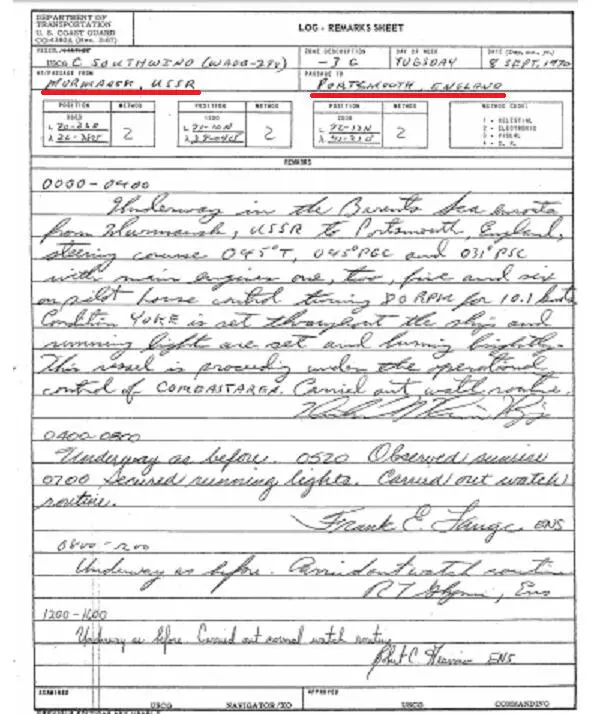 DEPARTMENT OF
TRANSPORTATION
U. S. COAST GUARD
LOG - REMARKS SHEET
ZONE DESCRIPTION
DAY OF WEEK
USCGC SOUTHWIND (WAGB-280)
TUESDAY
8 SEPT, 1970
AT/PASSAGE FROM
PASSAGE TO
MURMANSK, USSR
PORTSMOUTH, ENGLAND
POSITION METHOD POSITION METHOD POSITION METHOD
2 2 2
1 - CELESTIAL
2 - ELECTRONIC
3 - VISUAL
4 - D. R.
REMARKS
0000-0400
Underway in the Barents Sea enroute
from Murmansk, USSR to Portsmouth, England,
steering course 045°T, 045°PGC and 031°PSC
with main engines one, two, five and six
on pilot house control turning 80 RPM for 10.1 knots.
Condition YOKE is set throughout the ship and
running lights are set and burning brightly.
This vessel is proceeding under the operational
control of COMEASTAREA. Carried out watch routine.
0400-0800
Underway as before. 0520 Observed sunrise
0700 Secured running lights. Carried out watch
routine.
Frank E. Lange ENS
Underway as before. Carried out watch routine
Ens
1200-1600
Underway as before. Carried out normal watch routine
Robert C. ENS
EXAMINED
APPROVED
USCG NAVIGATOR/XO USCG COMMANDING